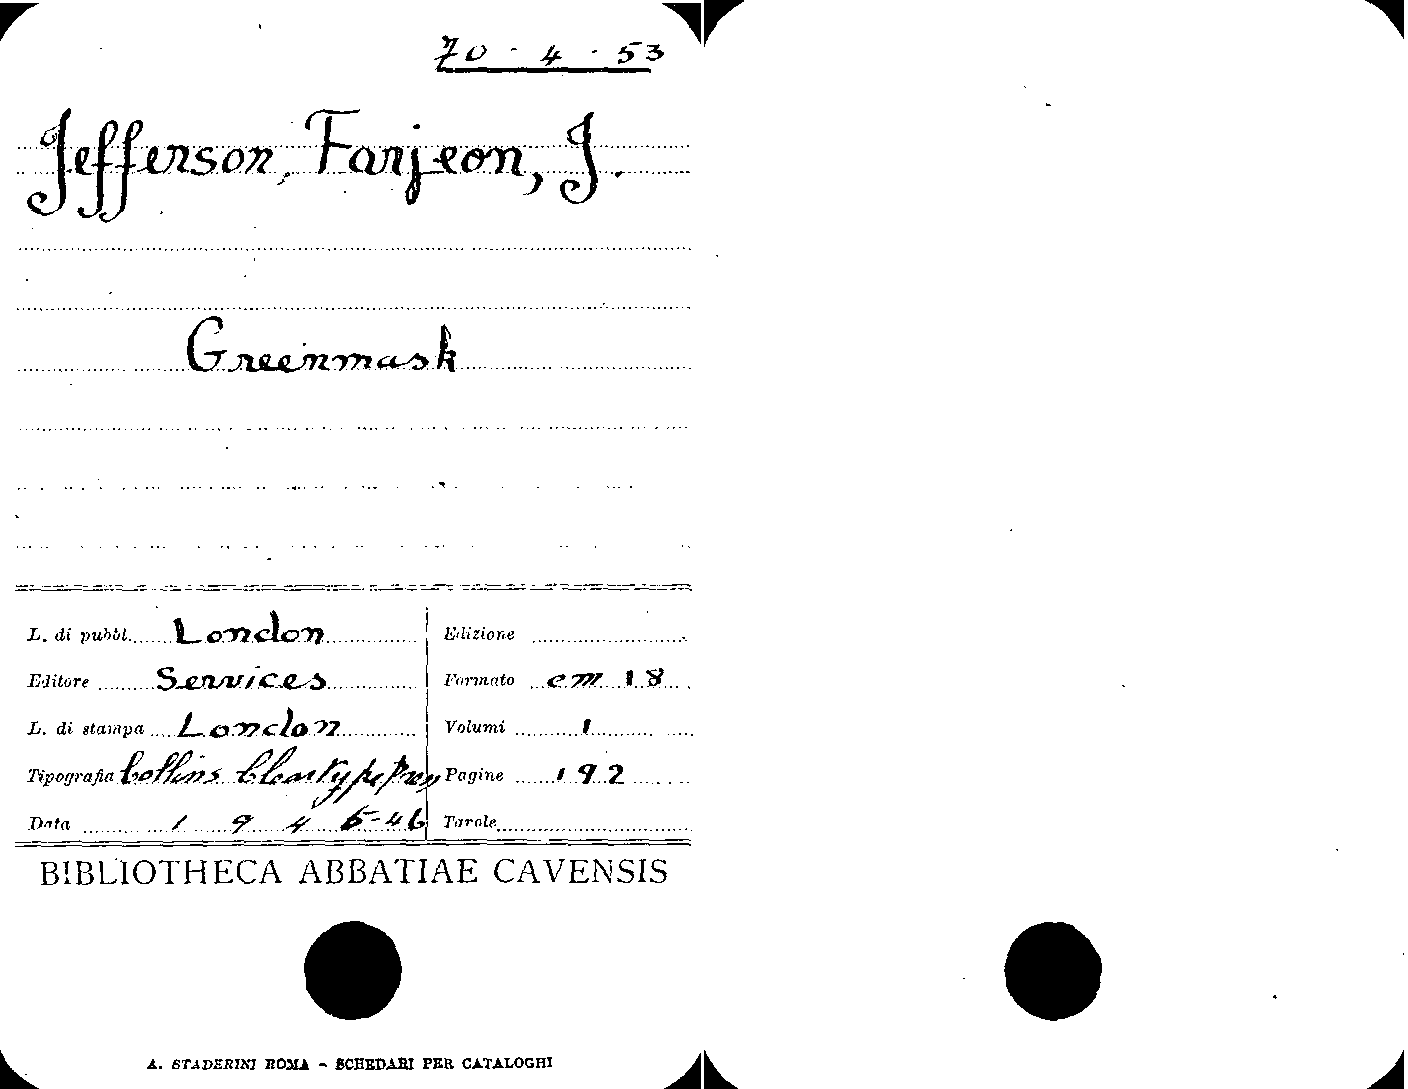 70 - 4 - 53
Jefferson, Farjeon, J.
Greenmask
L. di pubbl. London
Editore Services
L. di stampa London
Tipografia Collins Cleartype Press
Data 1945-46
Edizione
Formato cm 18
Volumi 1
Pagine 192
Tavole
BIBLIOTHECA ABBATIAE CAVENSIS
A. STADERINI ROMA - SCHEDARI PER CATALOGHI